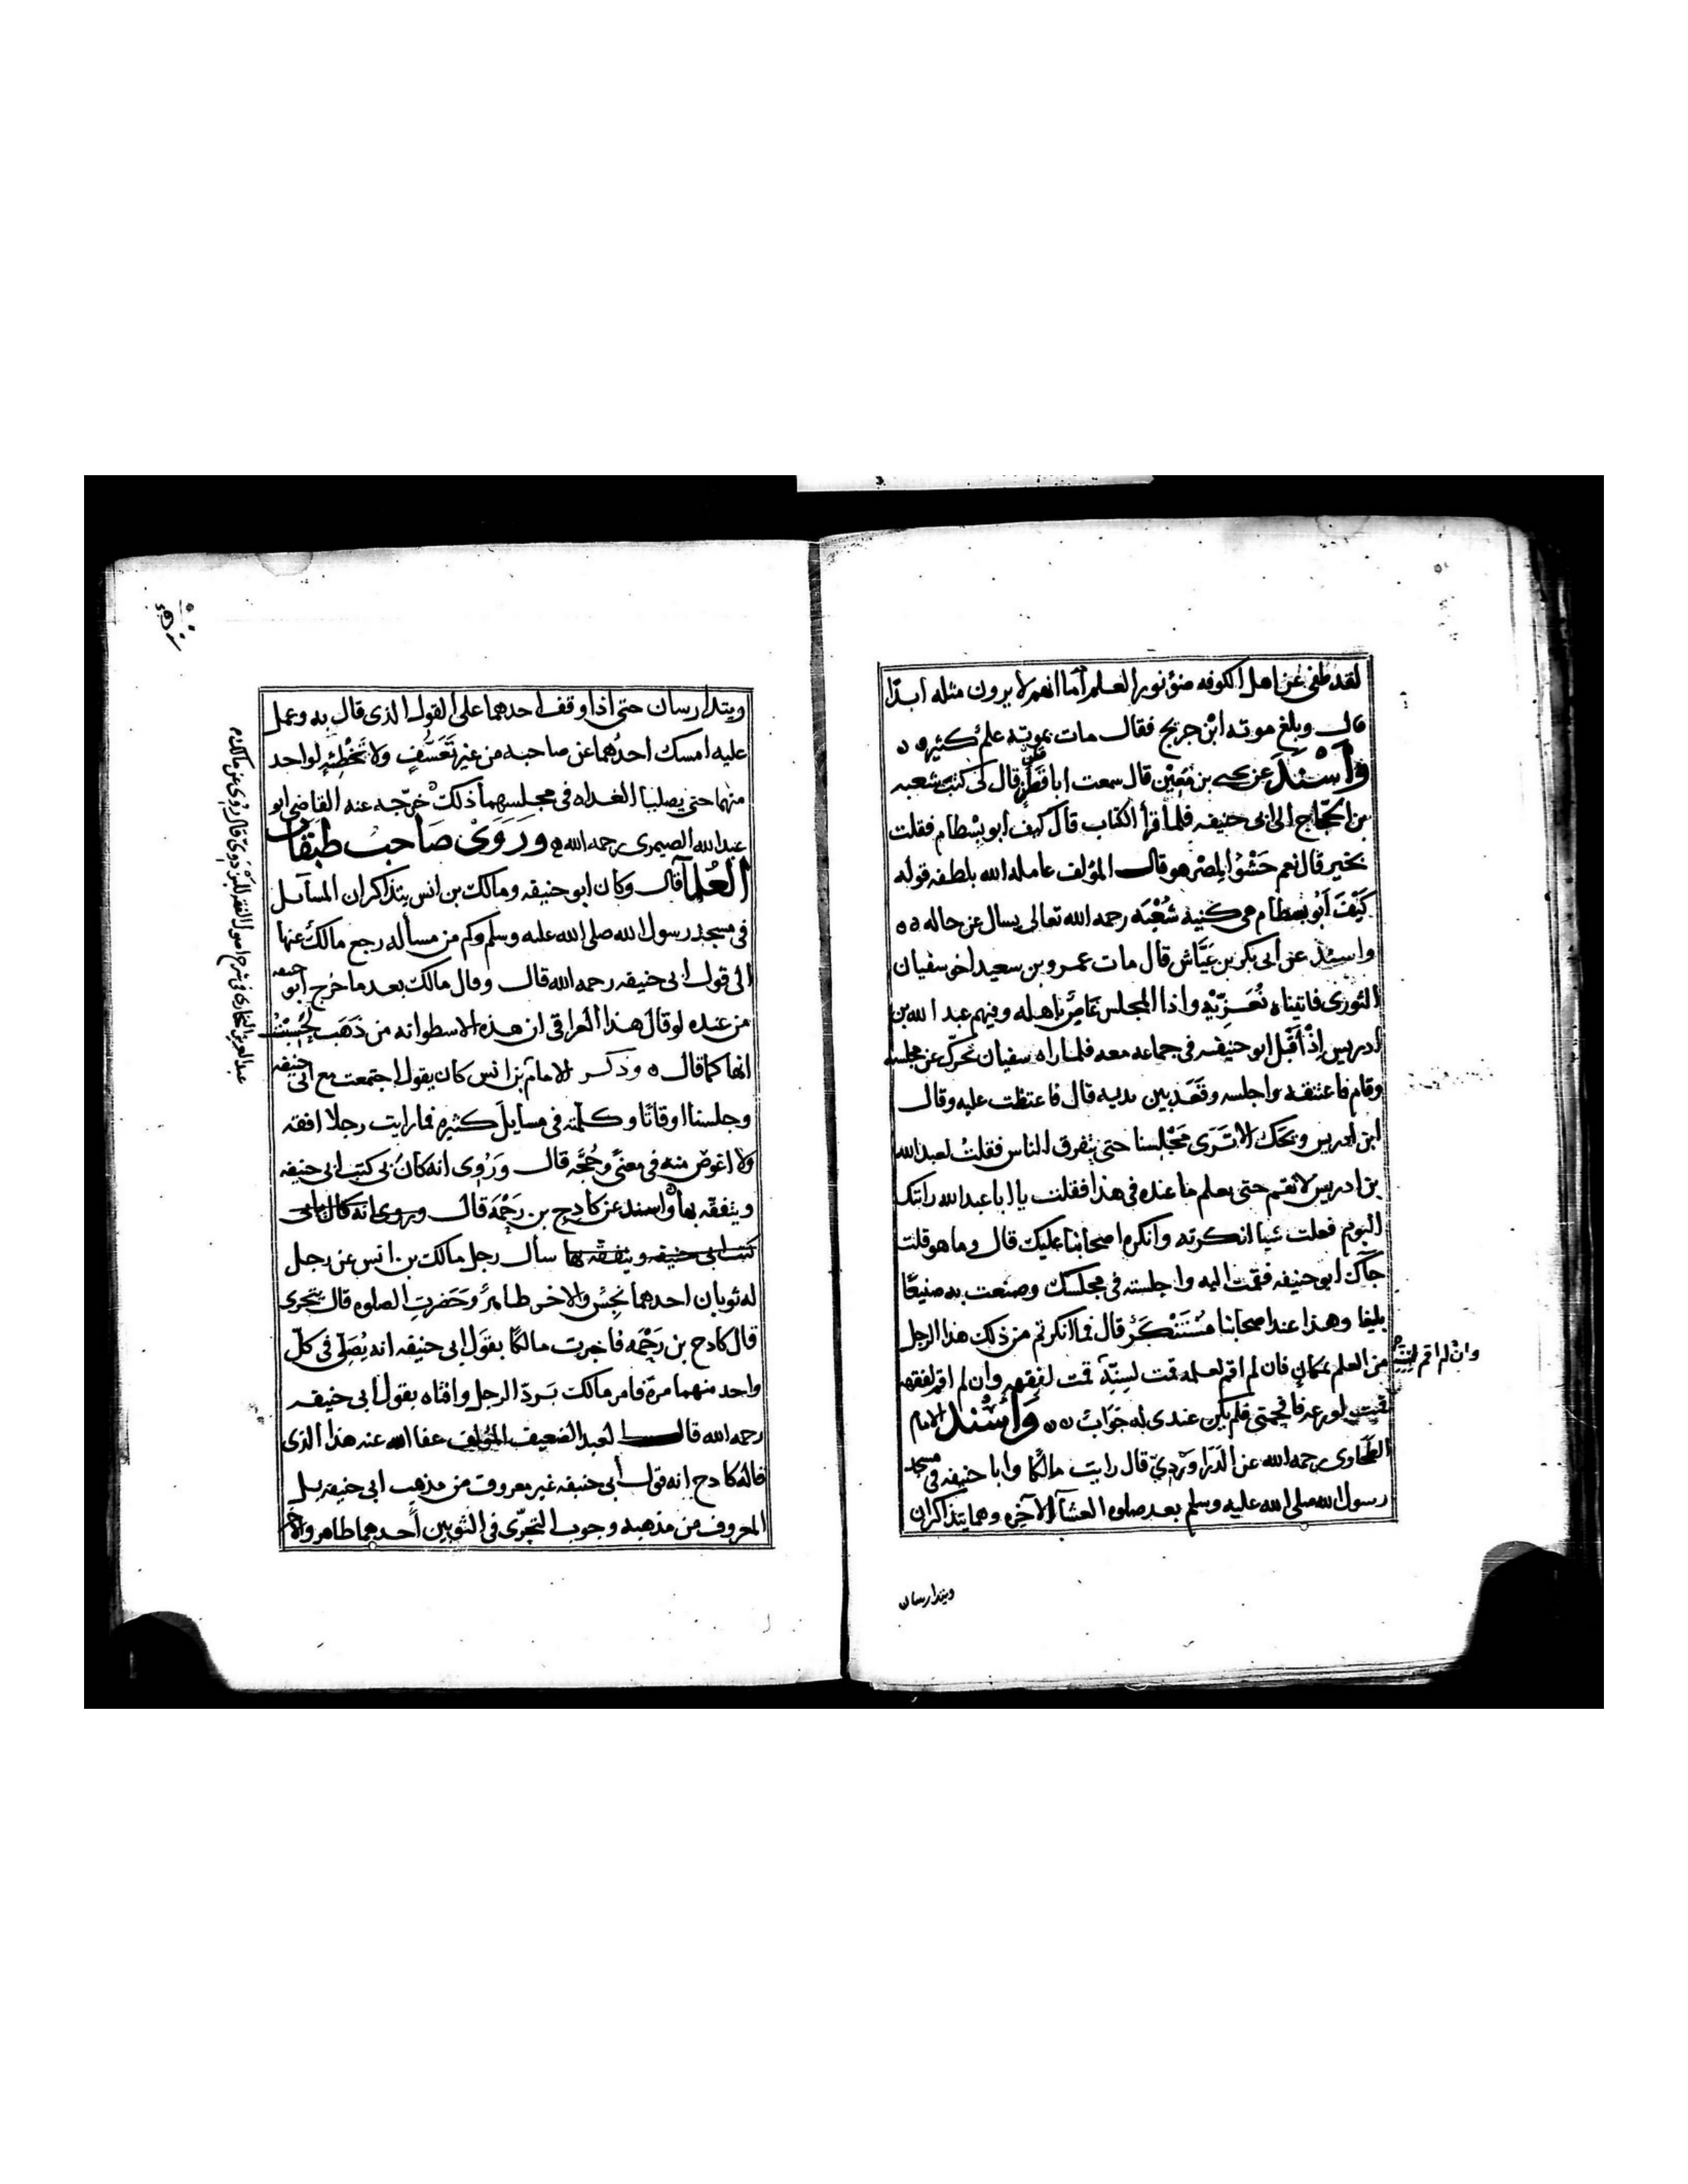 لقد طفى عن اهل الكوفه ضوٓ نور العلم اما انهم لا يرون مثله ابدًا
قال وبلغ موته ابن جريج فقال مات بموته علم كثيره
وَأسْنَدَ عن يحيى بن مَعِيْن قال سمعت ابا قَطَنٍ قال لى كتب شعبه
بن الحجّاج الى ابى حنيفه فلما قرأ الكتاب قال كيف ابو بِسْطام فقلت
بخير قال نعم حَشْوُ المِصْر هو قال المؤلف عامله الله بلطفه قوله
كَيْفَ أبُو بِسْطام هى كنية شُعْبَه رحمه الله تعالى يسال عن حاله
واسند عن ابى بكر بن عَيَّاش قال مات عمرو بن سعيد اخو سفيان
الثورى فاتيناه نُعَزِّيْهِ واذا المجلس غَاصٌّ باهله وفيهم عبد الله بن
ادريس إذْ أقْبَل ابو حنيفه فى جماعه معه فلما راه سفيان تحرّك عن مجلسه
وقام فاعتنقه واجلسه وقَعَد بين يديه قال فاعتظت عليه وقال
ابن ادريس ويحك الا تَرَى مَجْلِسنا حتى يتفرق الناس فقلتُ لعبد الله
بن ادريس لا تقم حتى يعلم ما عنده فى هذا فقلت يا ابا عبد الله رايتك
اليوم فعلت شيا انكرته وانكره اصحابنا عليك قال وما هو قلت
جآك ابو حنيفه فقمت اليه واجلسته فى مجلسك وصنعت به صنيعًا
بليغا وهذا عند اصحابنا مُسْتَنْكَرٌ قال فما انكرتم من ذلك هذا الرجل
من العلم بمكانٍ فان لم اقم لعلمه قمت لسِنِّه قمت لفقهه وان لم اقم لفقهه
وان لم اقم لسنه
قمت لورعه فافحمنى فلم يكن عندى له جَوَابٌ وَأسْنَد الامام
الطَحاوى رحمه الله عن الدَرَاوَرْدِيّ قال رايت مالكًا وابا حنيفه فى مسجد
رسول الله صلى الله عليه وسلم بعد صلوه العشآ الآخِره وهما يتذاكران
ويتدارسان
ويتدارسان حتى اذا وقف احدهما على القول الذى قال به وعمل
عليه امسك احدُهما عن صاحبه من غير تَعَسُّفٍ ولا تَخْطِئةٍ لواحد
منهما حتى يصليا الغداه فى مجلسِهِما ذلك خرّجه عنه القاضى ابو
عبد الله الصيمرى رحمه الله ورَوَىْ صَاحِبُ طَبَقَات
العُلمآ قال وكان ابو حنيفه ومالك بن انس يتذاكران المسآئل
فى مسجد رسول الله صلى الله عليه وسلم وكم من مسأله رجع مالك عنها
الى قول ابى حنيفه رحمه الله قال وقال مالك بعد ما خرج ابو حنيفه
من عنده لو قال هذا العراقى ان هذه الاسطوانه من ذَهَب لحُسِبْتُ
انها كما قال وذكر الامام بن انس كان يقول اجتمعت مع ابى حنيفه
وجلسنا اوقاتًا وكلّمته فى مسايل كثيره فما رايت رجلا افقه
ولا اغوص منه فى معنًى وحُجَّه قال ورُوِى انه كان كتب ابى حنيفه
ويتفقّه بها واسند عن كادِح بن رَحْمَه قال وروى انه كان
كتب ابى حنيفه ويتفقّه بها سأل رجل مالك بن انس عن رجل
له ثوبان احدهما نجِسٌ والاخر طاهرٌ وحَضَرتِ الصلوه قال يتحرى
قال كادح بن رَحْمَه فاخبرت مالكًا بقول ابى حنيفه انه يُصَلّى فى كلّ
واحد منهما مرة فامر مالك بَردّ الرجل وافتاه بقول ابى حنيفه
رحمه الله قال لعبد الضعيف المؤلف عفا الله عنه هذا الذى
قاله كادح انه قول ابى حنيفه غير معروف من مذهب ابى حنيفه بل
المعروف من مذهبه وجوب التحرّى فى الثوبين أحدهما طاهر والاخر
عبد العزيز البخارى فى شرح اصول الفقه للبَزْدَوِى قال روى عن مالك